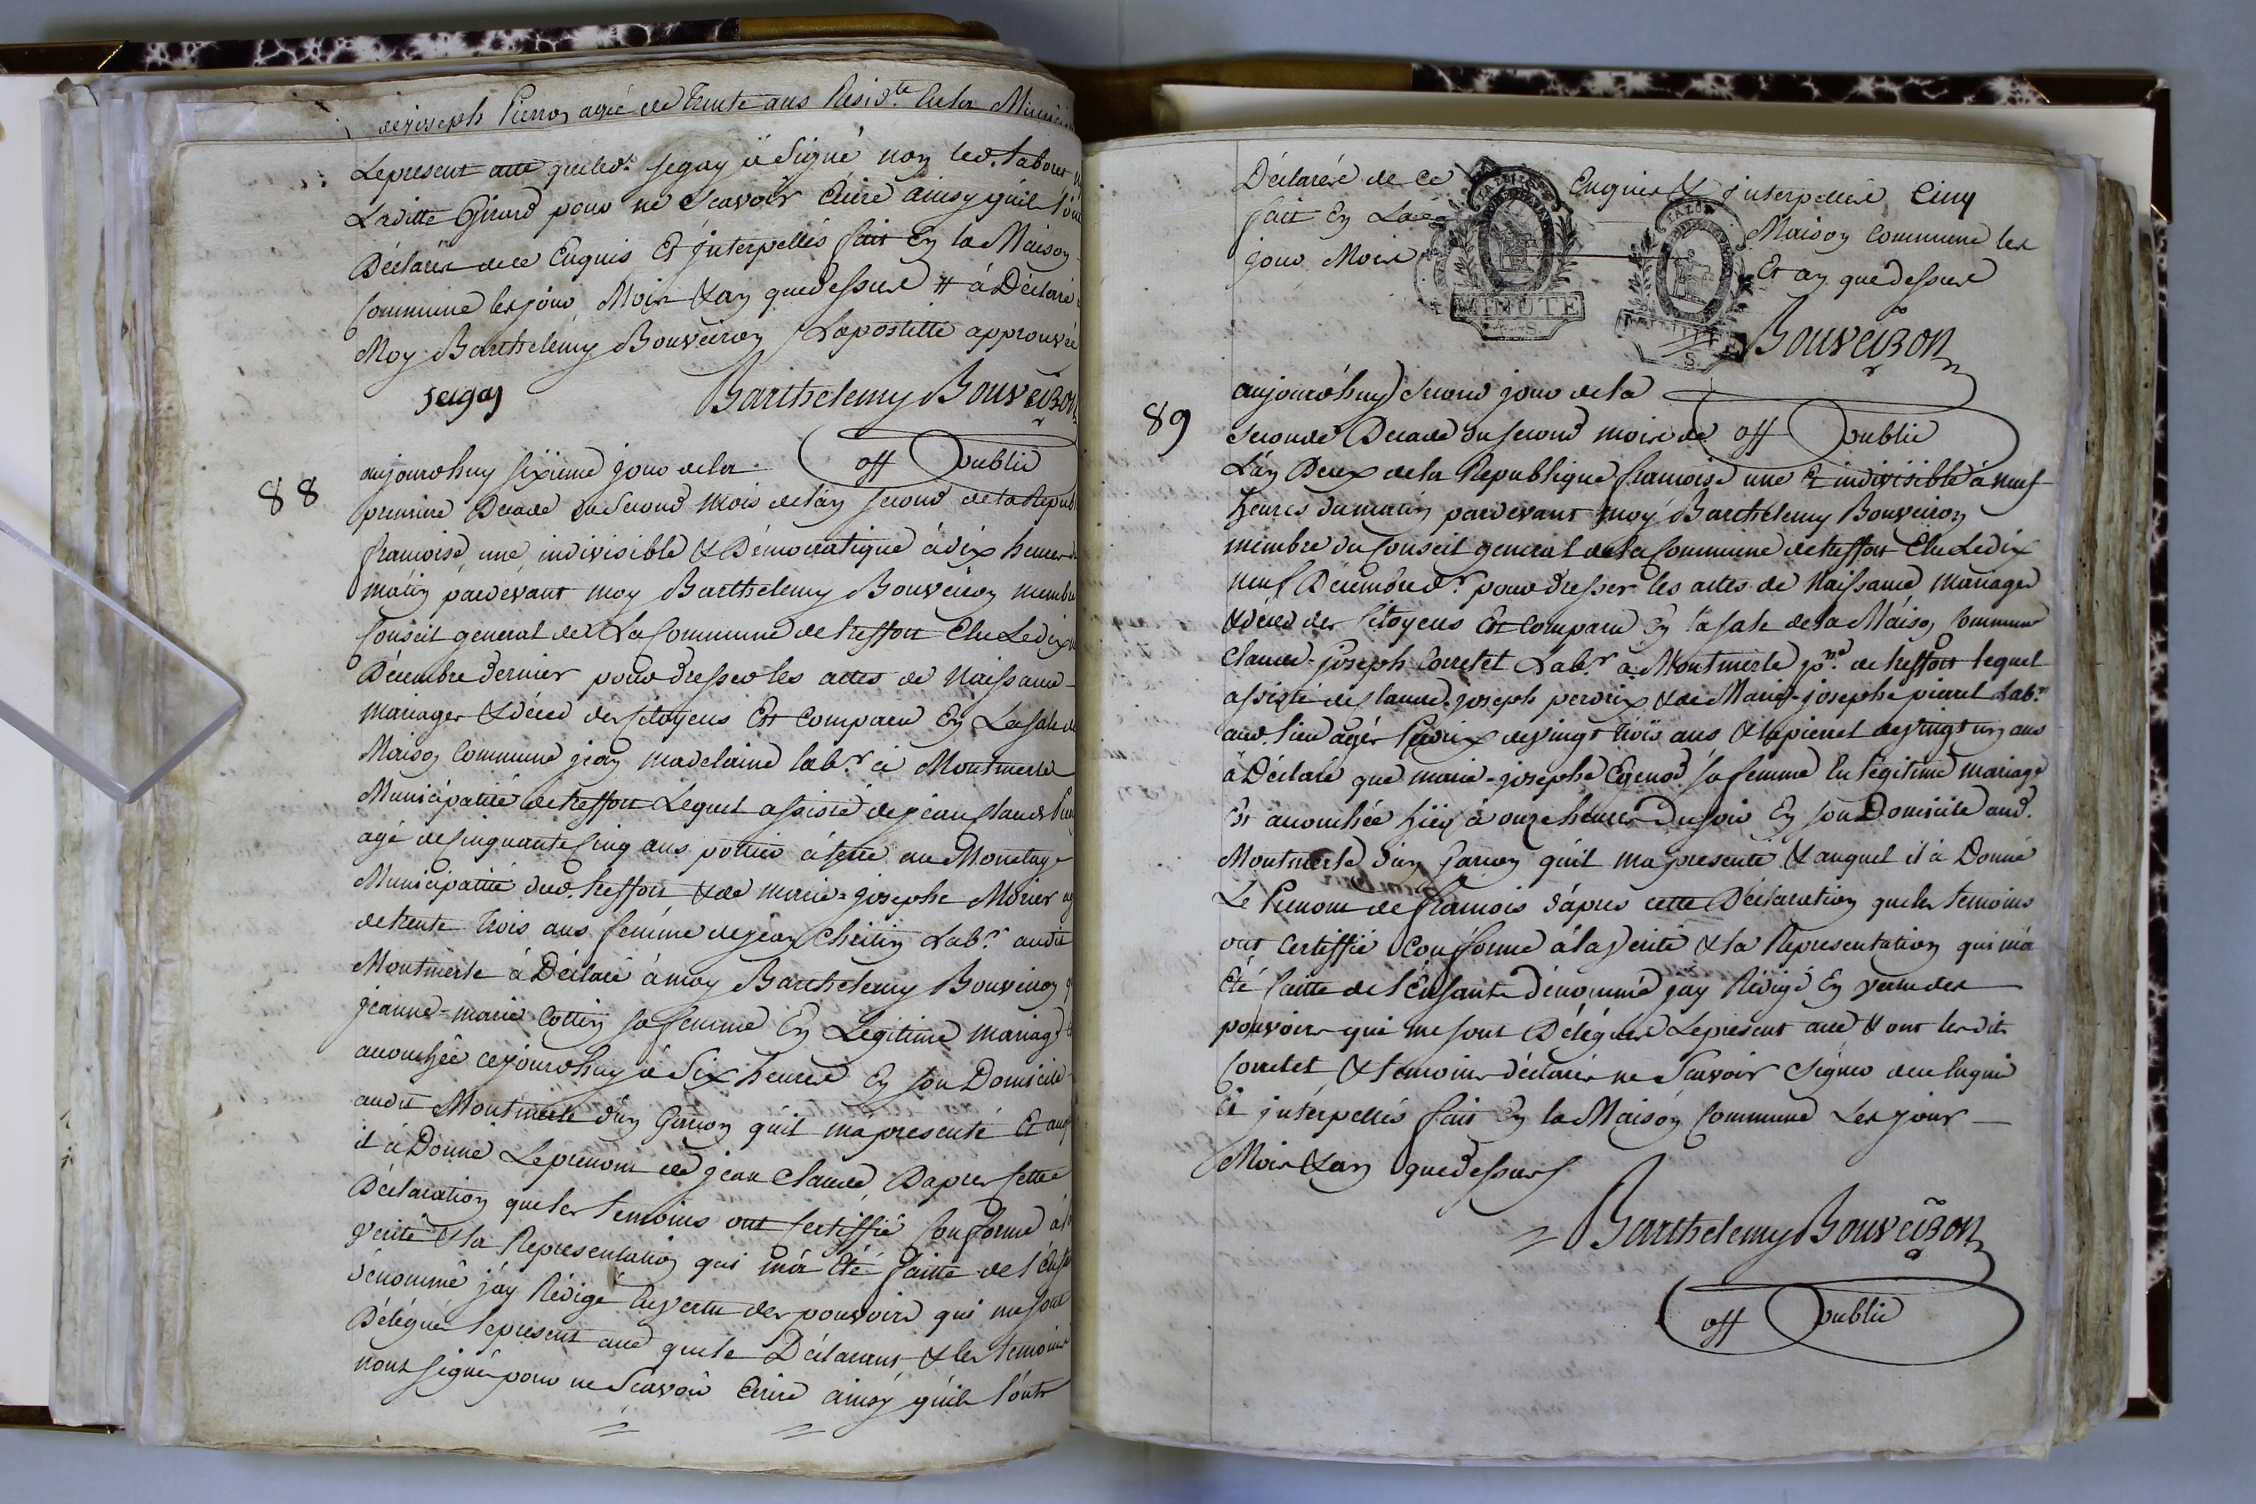 de joseph Pierron agé de trente ans Resid.te En la Munici
Le present acte que led.t Segay à Signé non led. tabouret
Laditte Girard pour ne Scavoir Ecrire ainsy quil l'ont
Déclarés de ce Enquis Et jnterpellés fait En la Maison
Commune les jour, Mois & an que dessus # à Déclaré
Moy Barthelemy Bouveiron Lapostille approuvée
Segay Barthelemy Bouveiron
off public
88
aujourdhuy sixieme jour de la
premiere Decade du Second mois de lan second de la Republ
francoise une indivisible & Démocratique à dix heures d
matin pardevant moy Barthelemy Bouveiron membre
Conseil general de La Commune de treffort Elu Le dix
Décembre dernier pour dresser les actes de Naissance
mariages & déces des Citoyens Est comparu En La Sale de
Maison Commune jean madelaine lab.r à Montmerle
Municipalité de treffort Lequel assisté de jean Claude
agé de Cinquante Cinq ans pottier à terre au Monetay
Municipalité dud. treffort & de marie-josephe Morier ag
de trente trois ans femme de jean Lab.r audit
Montmerle à Déclaré à moy Barthelemy Bouveiron q
jeanne-marie Cottin sa femme En Légitime mariage
accouchée cejourdhuy à Six heures En son Domicile
audit Montmerle d'un Garcon qu'il m'a presenté Et auq
il à Donné Le prenom de jean Claude Dapres Cette
Déclaration que les temoins ont Certiffié Conforme à l
verité & la Representation qui m'a Eté faitte de l'enfan
dénommé j'ay Rédigé En vertu des pouvoirs qui me sont
Délégués le present acte que le Déclarant & les temoins
n'ont signé pour ne Scavoir Ecrire ainsy qu'ils l'ont
Déclarés de ce Enquis & jnterpellés Cinq
fait En La Maison Commune les
jour Mois Et an que dessus
MINUTE
Bouveiron
off public
89
aujourdhuy Second jour de la
seconde Decade du second mois de
L'an Deux de la Republique francoise une & indivisible à neuf
heures du matin pardevant moy Barthelemy Bouveiron
membre du Conseil general de la Commune de treffort Elu Le dix
neuf Décembre d.r pour dresser les actes de Naissance mariages
& déces des Citoyens Est comparu En la sale de la Maison Commune
Claude-joseph Corretet Lab.r à Montmerle de treffort lequel
assisté de Claude-joseph perdrix & de Marie-josephe pierrel Lab.rs
aud. lieu agés Perdrix de vingt trois ans & la pierrel de vingt un ans
à Déclaré que marie-josephe sa femme En légitime mariage
Est accouchée hier à onze heures Du soir En son Domicile aud.
Montmerle d'un Garcon qu'il ma presenté & auquel il à Donné
Le Prenom de francois d'apres cette Déclaration que les temoins
ont certiffié conforme à la verité & la Representation qui m'a
Eté faitte de l'Enfant dénommé jay Rédigé En vertu des
pouvoirs qui me sont Délégués Le present acte & ont lesdits
Corretet & temoins déclarés ne Scavoir signer de ce Enquis
Et jnterpellés fait En la Maison Commune Les jour
Mois & an que dessus
Barthelemy Bouveiron
off public